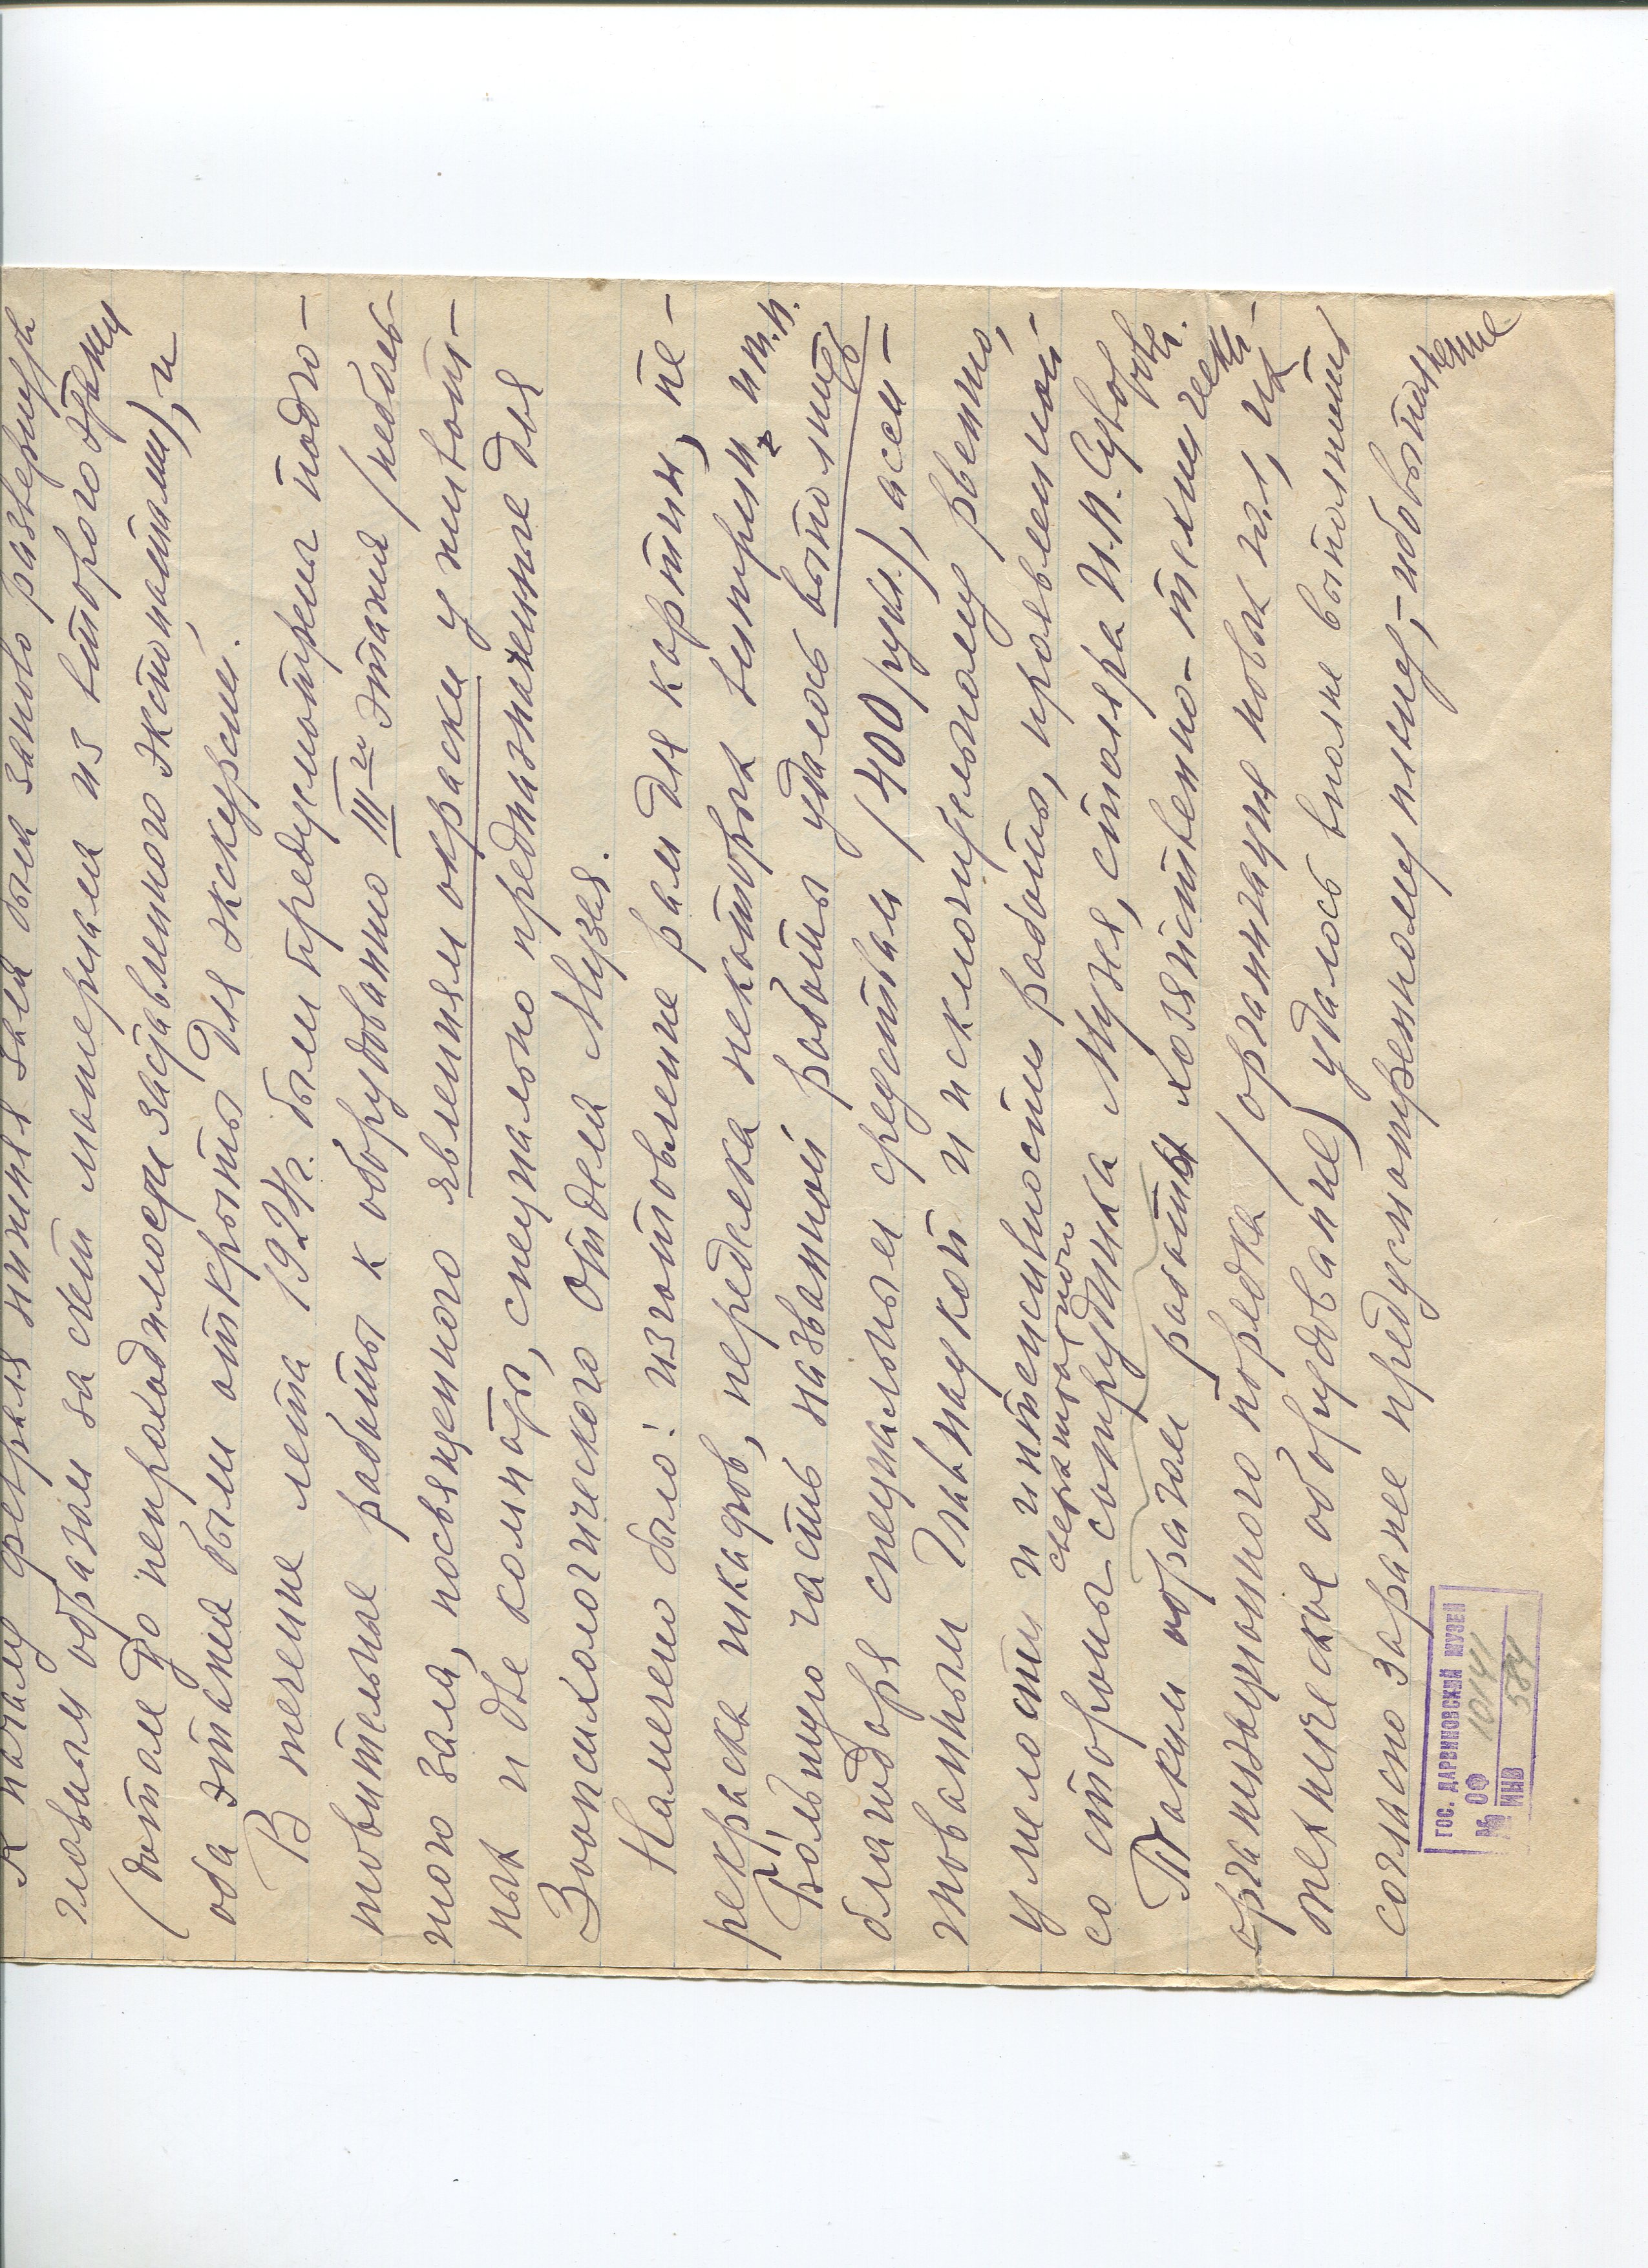 К началу февраля нижняя зала была заново развернута
главным образом за счет материала из второго этажа
(дотоле до непроходимости заставленного экспонатами), и
оба этажа были открыты для экскурсий.
В течение лета 1924г. были предусмотрены подго-
товительные работы к оборудованию III-го этажа (неболь-
шого зала, посвященного явлениям окраски у живот-
ных и две комнаты, специально предназначенные для
Зоопсихологического отдела Музея.
Намечено было: изготовление рам для картин, пе-
рекраска шкафов, переделка некоторых витрин и т.п.
Бо́льшую часть названной работы удалось выполнить
благодаря специальным средствам (400 рубл.), асси-
гнованным Главнаукой и исключительному рвению,
умелости и интенсивности работы, проявленной
со стороны сверхштатного сотрудника Музея, столяра И.П. Суворова.
Таким образом работы хозяйственно-технически-
организационного порядка (организация новых зал, их
техническое оборудование) удалось вполне выполнить
согласно заранее предусмотренному плану,
ГОС. ДАРВИНОВСКИЙ МУЗЕЙ
№ ОФ 10141
ИНВ 584